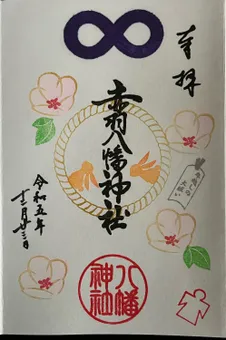 奉拝
赤羽八幡神社
令和五年
十二月廿三日
八幡
神社